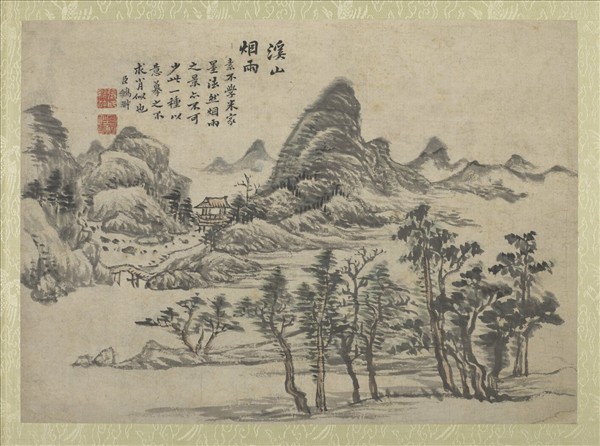 溪山
烟雨
素不學米家
墨法然烟雨
之景亦不可
少此一種以
意摹之不
求肖似也
臣鶴